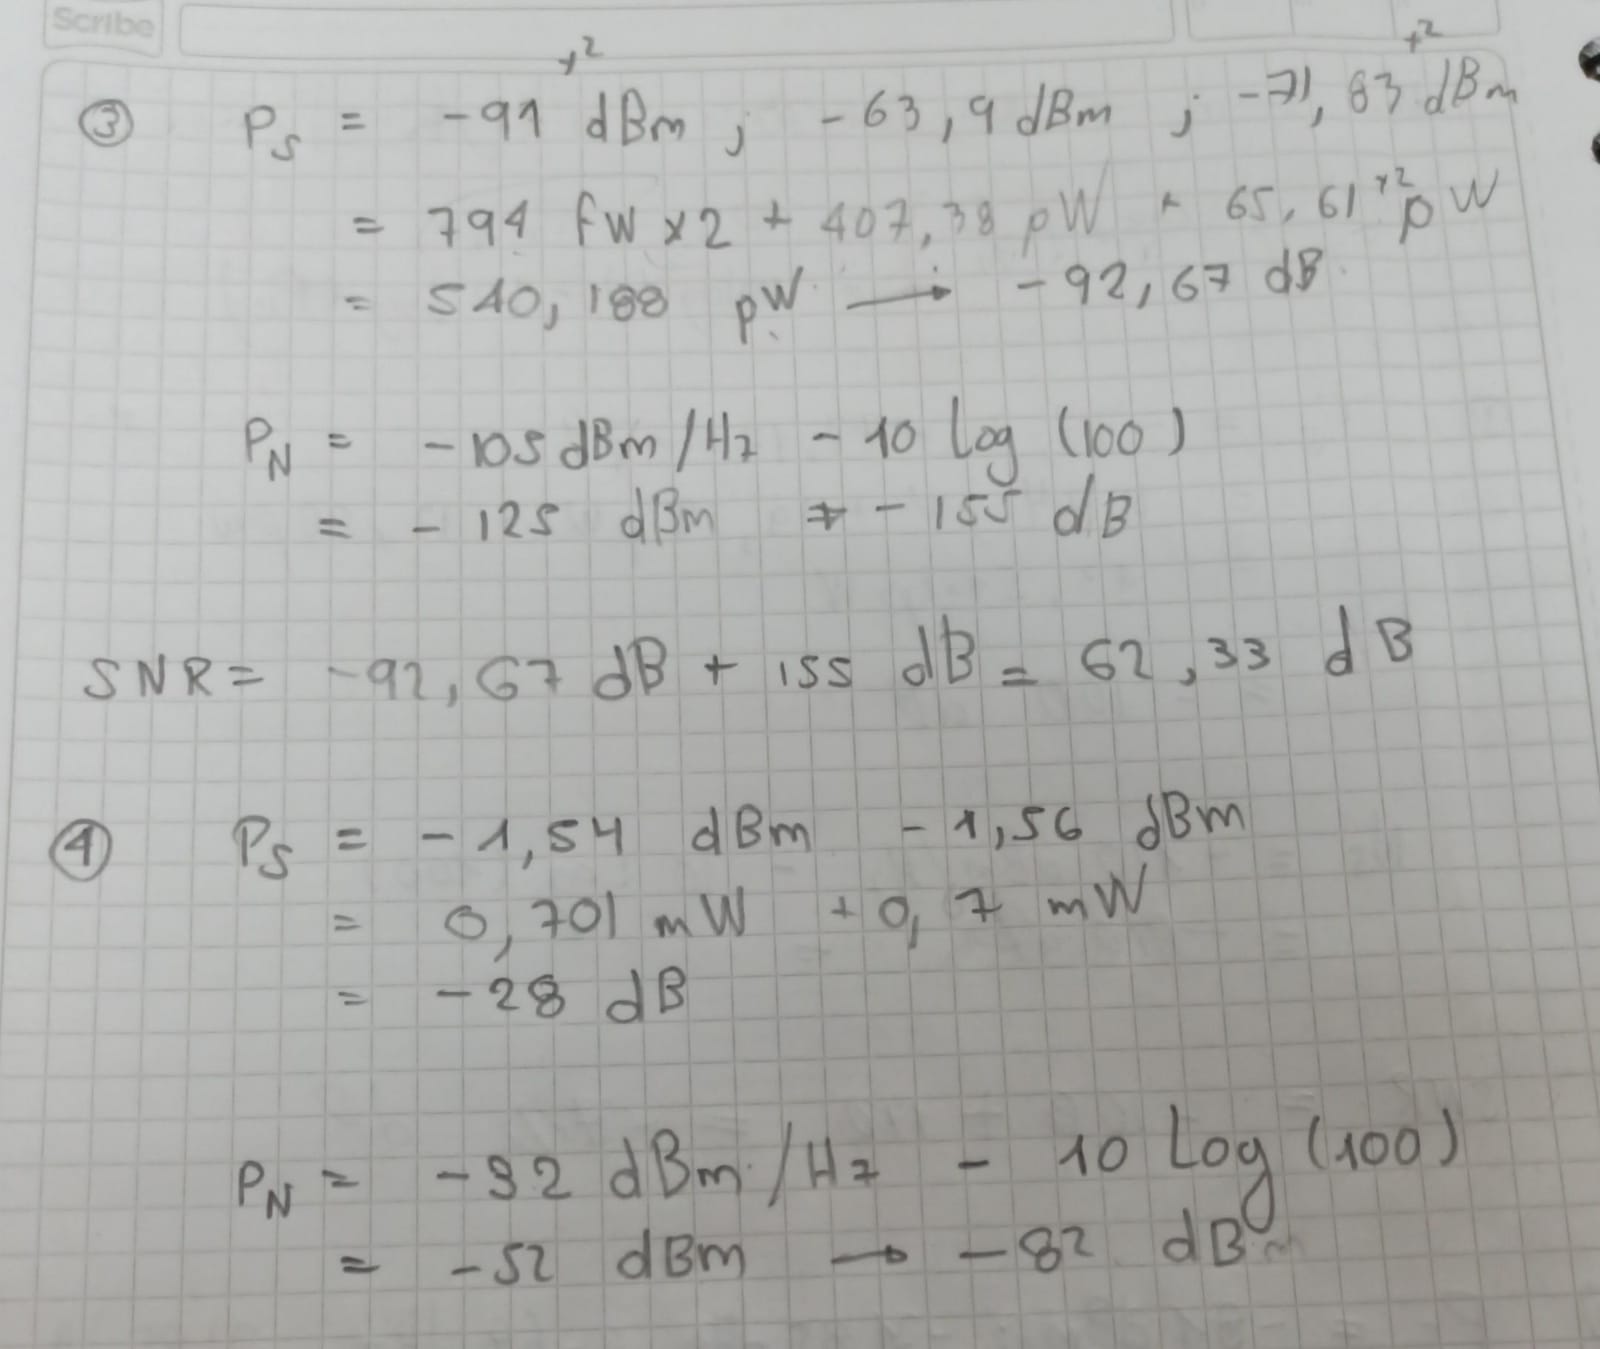 Scribe
x2 x2
③ PS = -91 dBm ; -63,9 dBm ; -71,83 dBm
= 794 fW x2 + 407,38 pW + 65,61 x2 pW
= 540,188 pW → -92,67 dB
PN = -105 dBm/Hz - 10 log (100)
= -125 dBm → -155 dB
SNR = -92,67 dB + 155 dB = 62,33 dB
④ PS = -1,54 dBm -1,56 dBm
= 0,701 mW + 0,7 mW
= -28 dB
PN = -32 dBm/Hz - 10 Log (100)
= -52 dBm → -82 dB